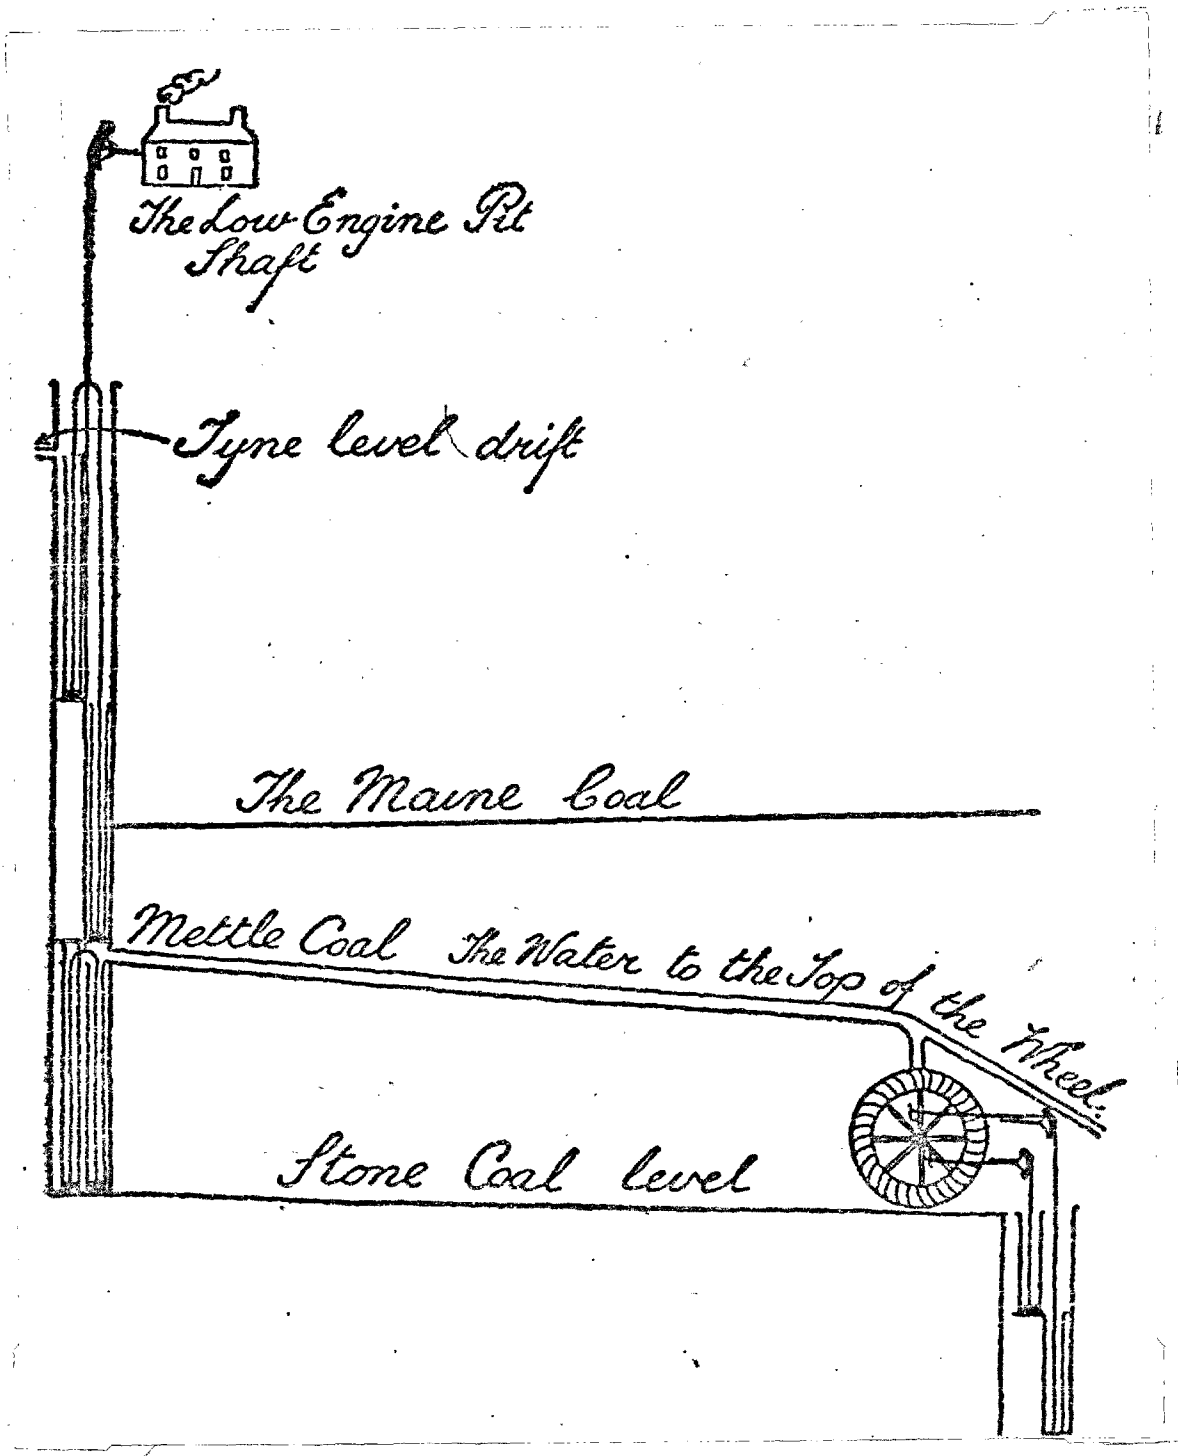 The Low Engine Pit
Shaft
Tyne level drift
The Maine Coal
Mettle Coal The Water to the Top of the Wheel.
Stone Coal level